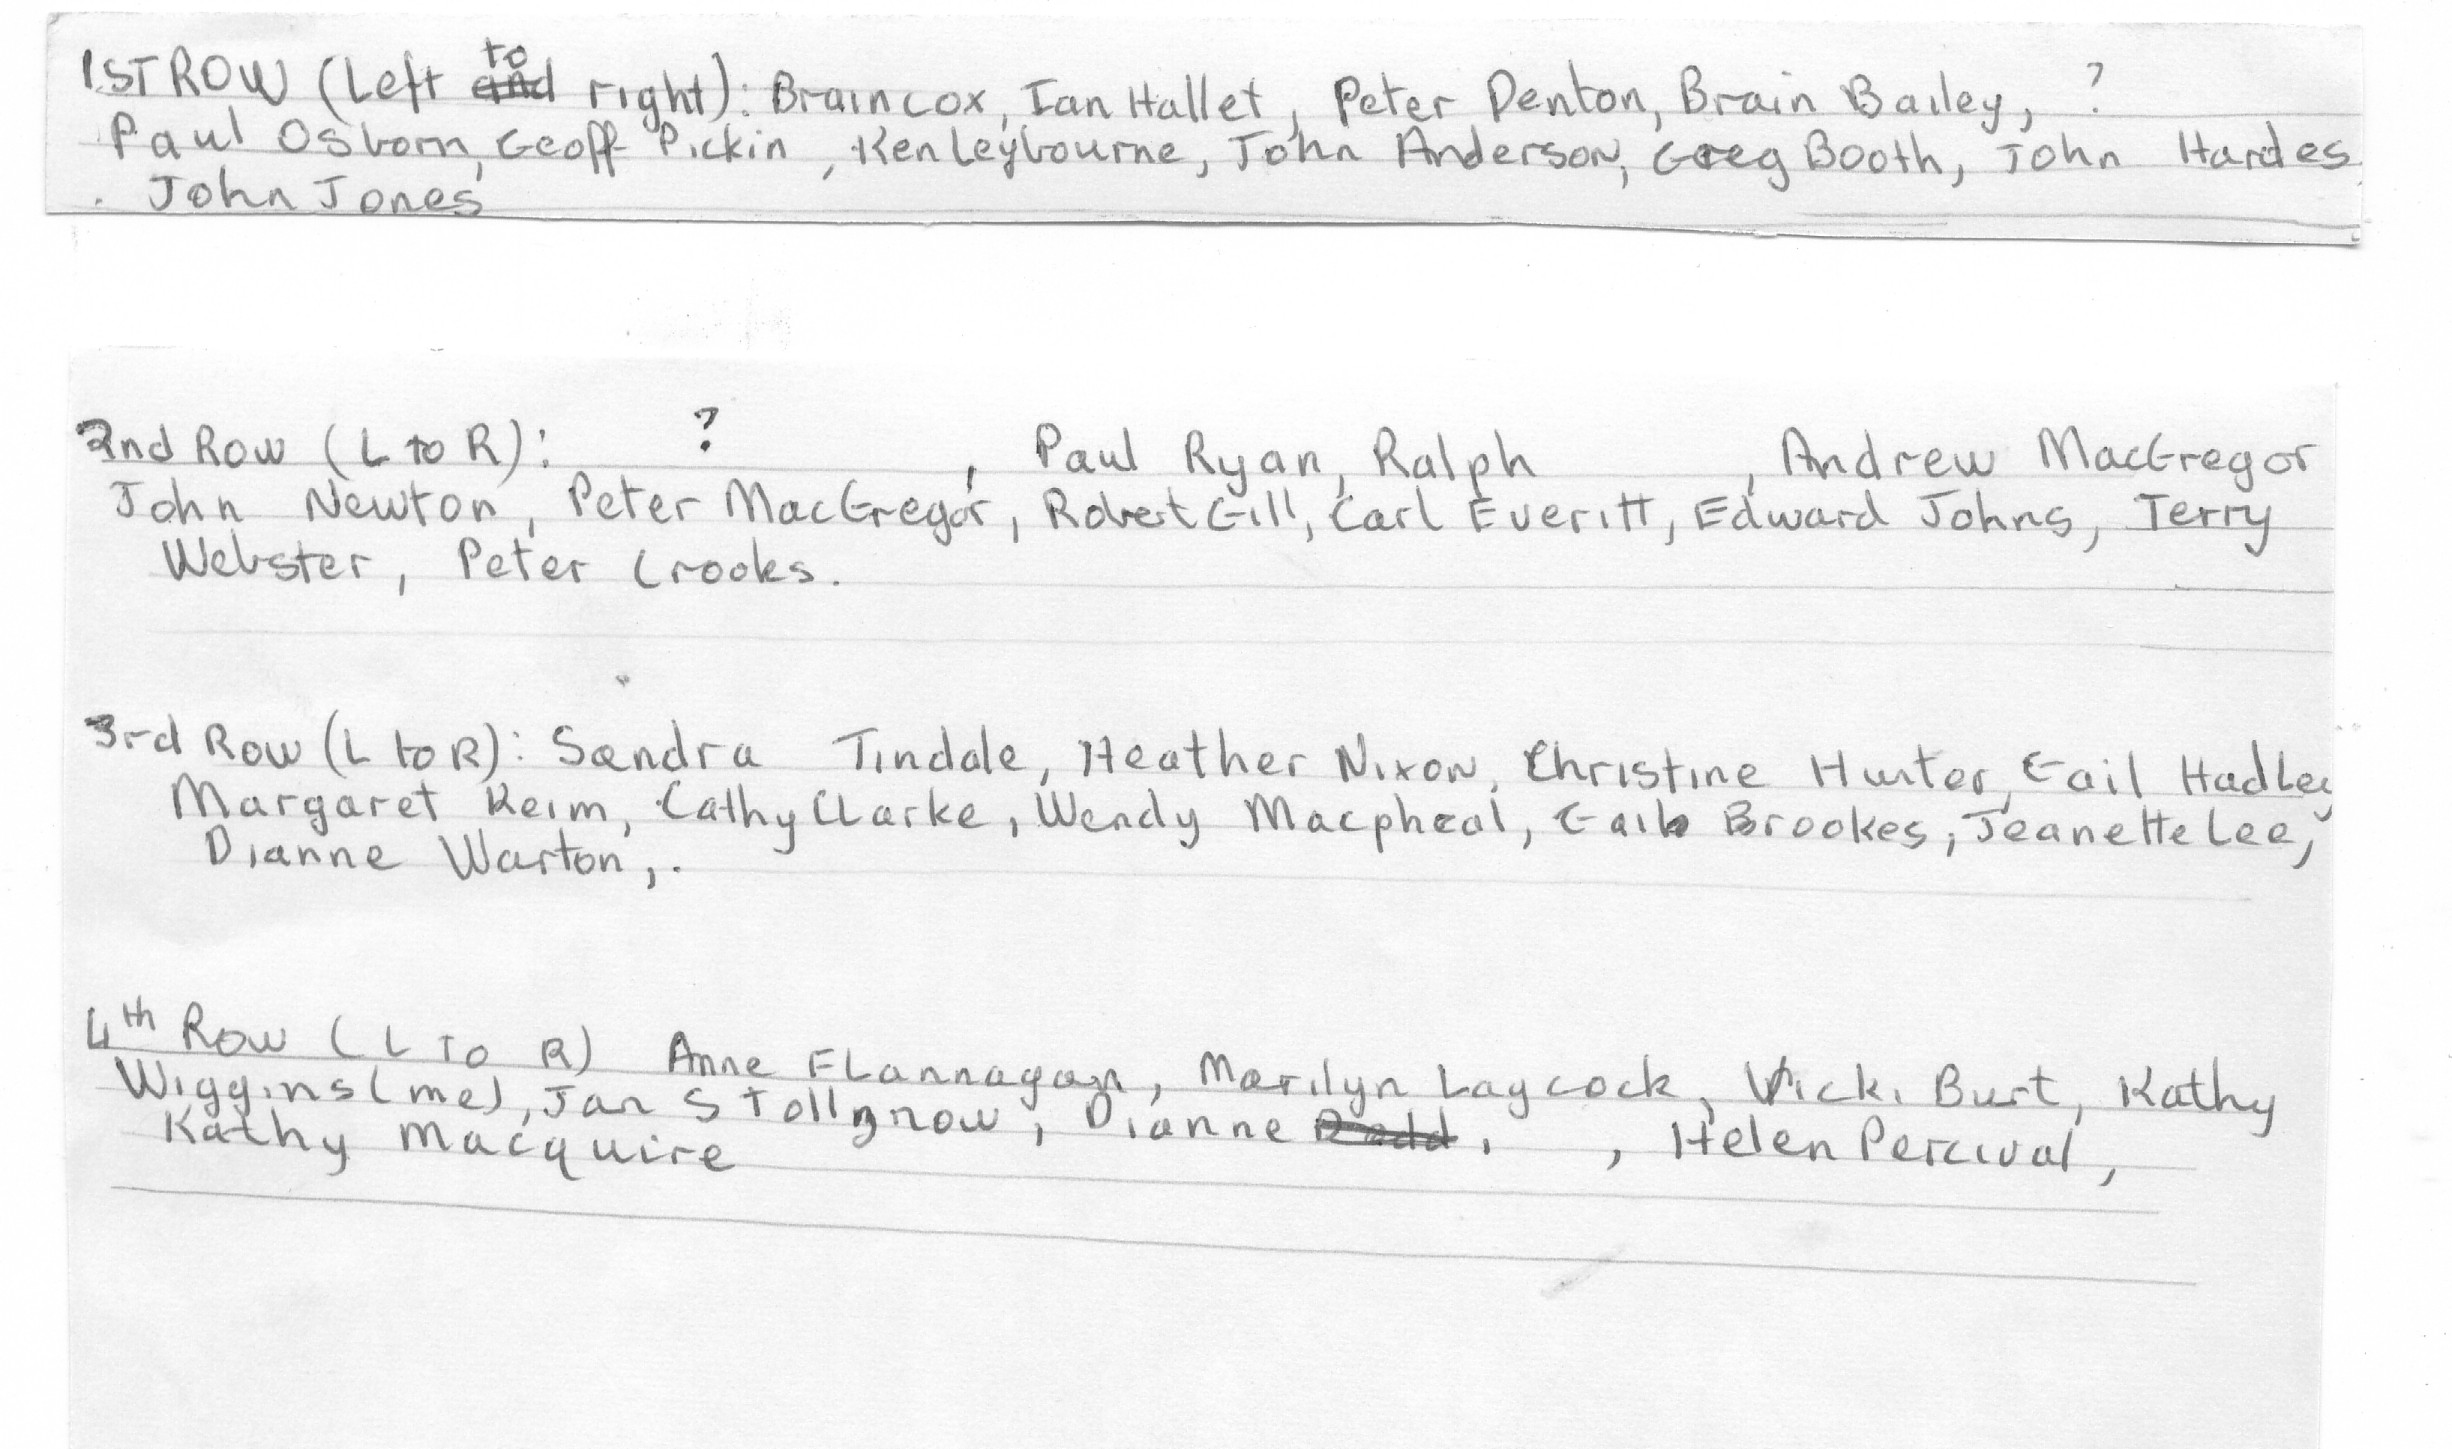 1ST ROW (Left to right): Braincox, Ian Hallet, Peter Denton, Brain Bailey, ?
Paul Osborn, Geoff Pickin, Ken Leybourne, John Anderson, Greg Booth, John Hardes
. John Jones
2nd Row (L to R): ? , Paul Ryan, Ralph , Andrew MacGregor
John Newton, Peter MacGregor, Robert Gill, Carl Everitt, Edward Johns, Terry
Webster, Peter Crooks.
3rd Row (L to R): Sandra Tindale, Heather Nixon, Christine Hunter, Gail Hadley
Margaret Keim, Cathy Clarke, Wendy Macpheal, Gail Brookes, Jeanette Lee,
Dianne Warton,.
4th Row (L To R) Anne Flannagan, Marilyn Laycock, Vicki Burt, Kathy
Wiggins (me), Jan Stollgnow, Dianne , , Helen Percival,
Kathy Macquire